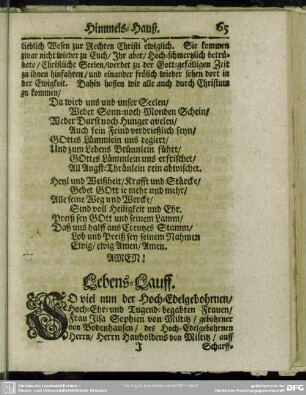 Himmels-Hauß. 65
lieblich Wesen zur Rechten Christi ewiglich. Sie kommen
zwar nicht wieder zu Euch/ Ihr aber/ Hoch-schmertzlich betrü-
bete/ Christliche Seelen/ werdet zu der Gott-gefälligen Zeit
zu ihnen hinfahren/ und einander frölich wieder sehen dort in
der Ewigkeit. Dahin hoffen wir alle auch durch Christum
zu kommen/
Da wird uns und unser Seelen/
Weder Sonn-noch Monden Schein/
Weder Durst noch Hunger qvelen/
Auch kein Feind verdrießlich seyn/
GOttes Lämmlein uns regiert/
Und zum Lebens Brünnlein führt/
GOttes Lämmlein uns erfrischet/
All Angst-Thränlein rein abwischet.
Heyl und Weißheit/ Krafft und Stärcke/
Gebet GOtt ie mehr und mehr/
Alle seine Weg und Wercke/
Sind voll Heiligkeit und Ehr.
Preiß sey GOtt und seinem Lamm/
Daß uns halff ans Creutzes Stamm/
Lob und Preiß sey seinem Nahmen
Ewig/ ewig Amen/ Amen.
AMEN!
Lebens-Lauff.
SO viel nun der Hoch-Edelgebohrnen/
Hoch-Ehr- und Tugend-begabten Frauen/
Frau Ilsa Sophien von Miltitz/ gebohrner
von Bodenhausen/ des Hoch-Edelgebohrnen
Herrn/ Herrn Hauboldens von Miltitz/ auff
J Scharff-
Deutsche Forschungsgemeinschaft